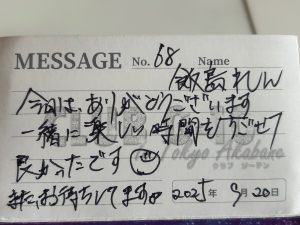 MESSAGE No. 68 Name
飯島れん
今日は、ありがとうございます
一緒に楽しい時間をすごせて
良かったです
また、お待ちしてます。 2025年 9月20日
Tokyo Akabane
クラブ ジーテン